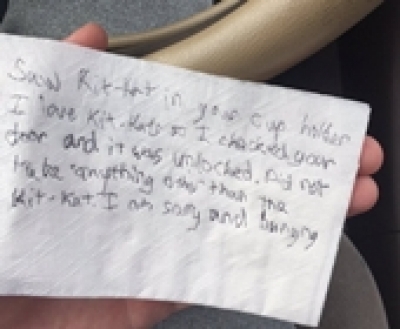 Saw Kit-Kat in your cup holder
I love Kit-Kats so I checked your
door and it was unlocked. Did not
take anything other than the
Kit-Kat. I am sorry and hungry